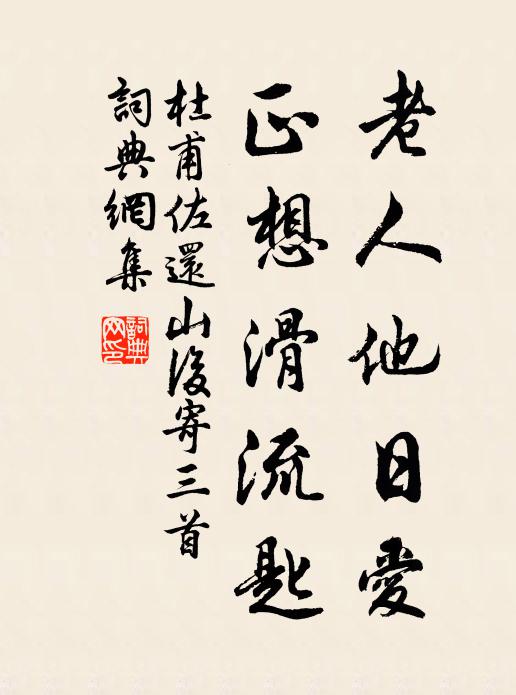 老人他日愛
正想滑流匙
杜甫佐還山後寄三首
詞典網集
詞典
网印